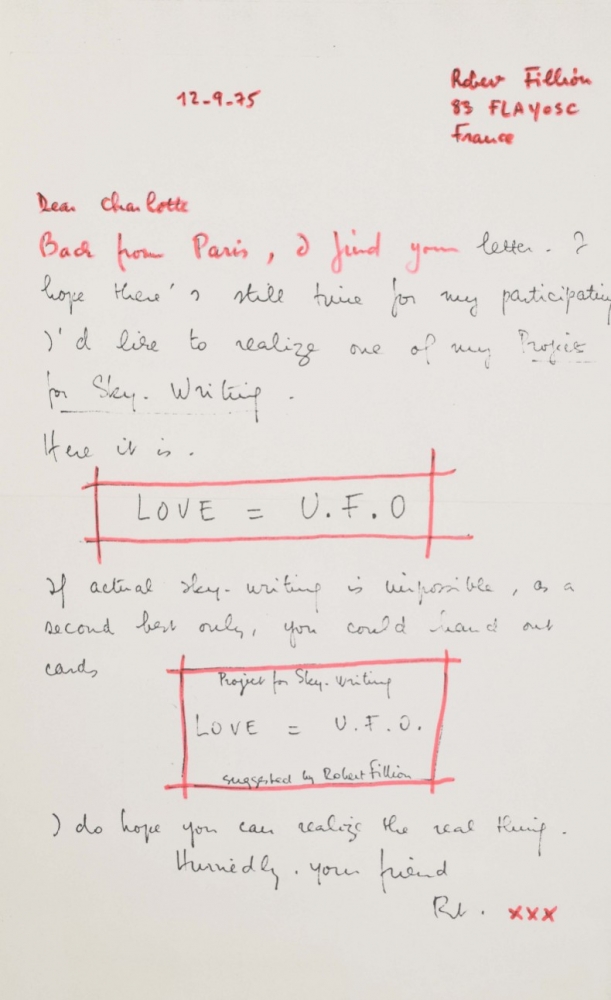 12-9-75
Robert Fillion
83 FLAYOSC
France
Dear Charlotte
Back from Paris, I find your letter. I
hope there's still time for my participating
I'd like to realize one of my Projects
for Sky-Writing.
Here it is.
LOVE = U.F.O
If actual sky-writing is impossible, as a
second best only, you could hand out
cards
Project for Sky-Writing
LOVE = U.F.O.
suggested by Robert Fillion
I do hope you can realize the real thing.
Hurriedly. your friend
Rt. xxx